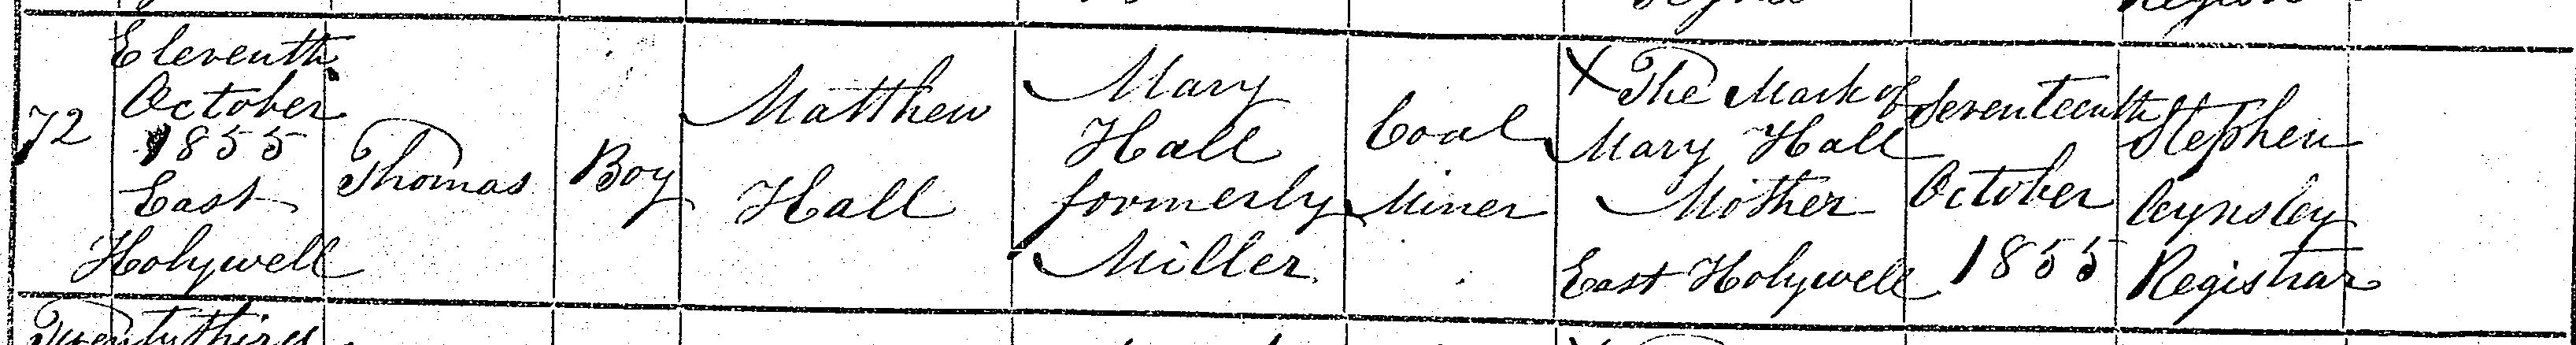 72
Eleventh
October
1855
East
Holywell
Thomas
Boy
Matthew
Hall
Mary
Hall
formerly
Miller
Coal
Miner
X The Mark of
Mary Hall
Mother
East Holywell
Seventeenth
October
1855
Stephen
Cynsley
Registrar